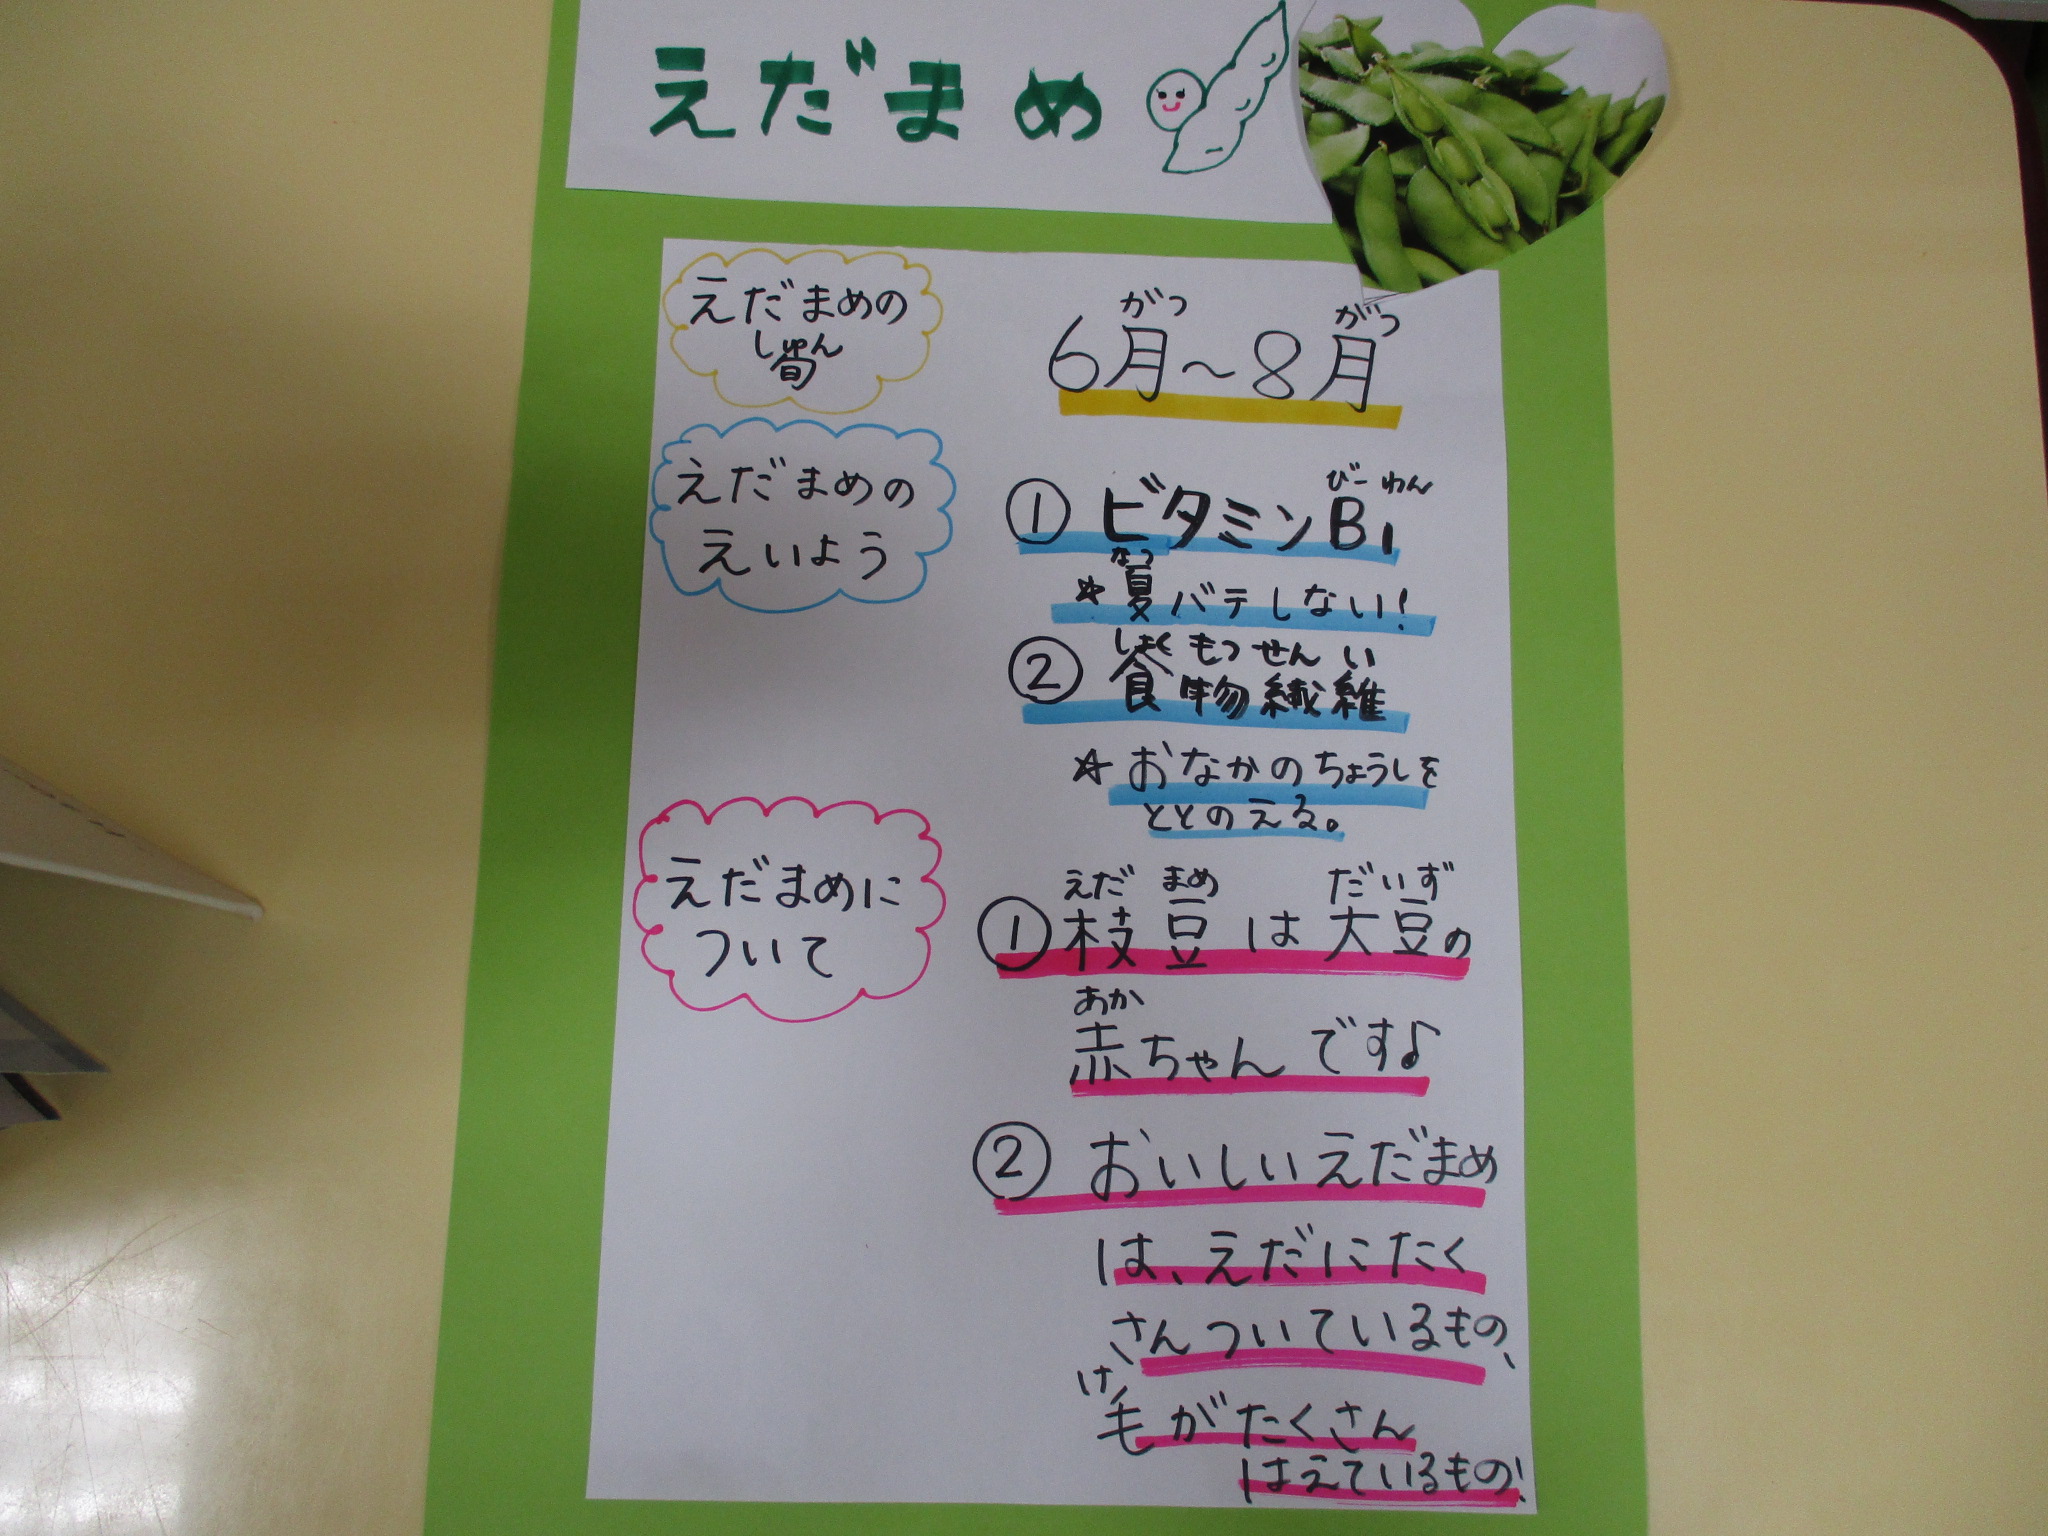 えだまめ
えだまめの
しゅん
旬
がつ がつ
6月～8月
えだまめの
えいよう
びーわん
① ビタミンB1
なつ
☆夏バテしない!
しょく もつ せん い
② 食物繊維
☆おなかのちょうしを
ととのえる。
えだまめに
ついて
えだ まめ だいず
①枝豆は大豆の
あか
赤ちゃんです♪
② おいしいえだまめ
は、えだにたく
さんついているもの、
け
毛がたくさん
はえているもの!